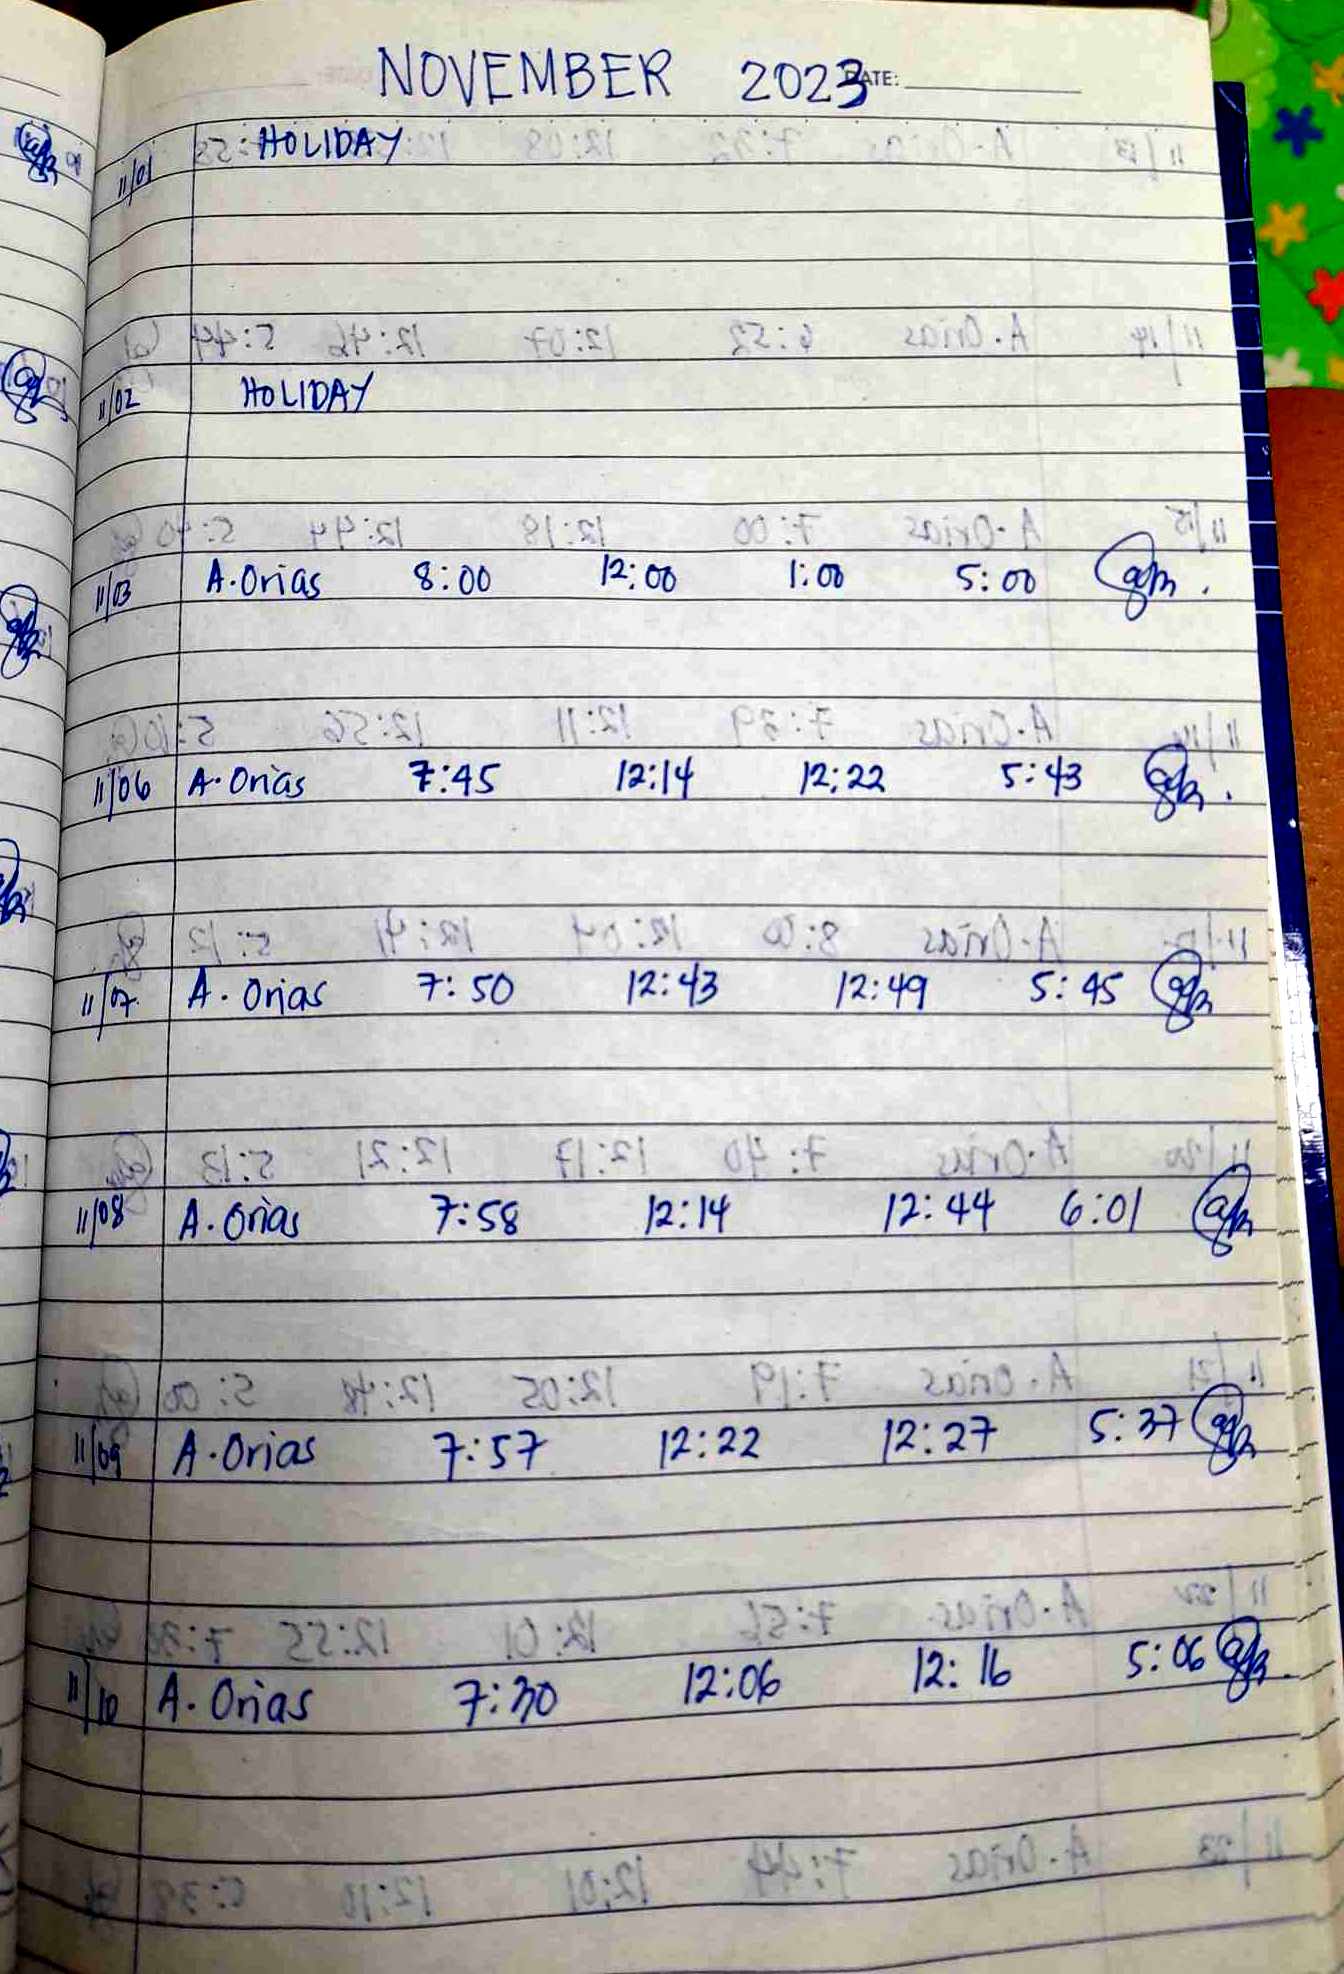 NOVEMBER 2023 DATE:
11/01 HOLIDAY
11/02 HOLIDAY
11/03 A. Orias 8:00 12:00 1:00 5:00
11/06 A. Orias 7:45 12:14 12:22 5:43
11/07 A. Orias 7:50 12:43 12:49 5:45
11/08 A. Orias 7:58 12:14 12:44 6:01
11/09 A. Orias 7:57 12:22 12:27 5:37
11/10 A. Orias 7:30 12:06 12:16 5:06